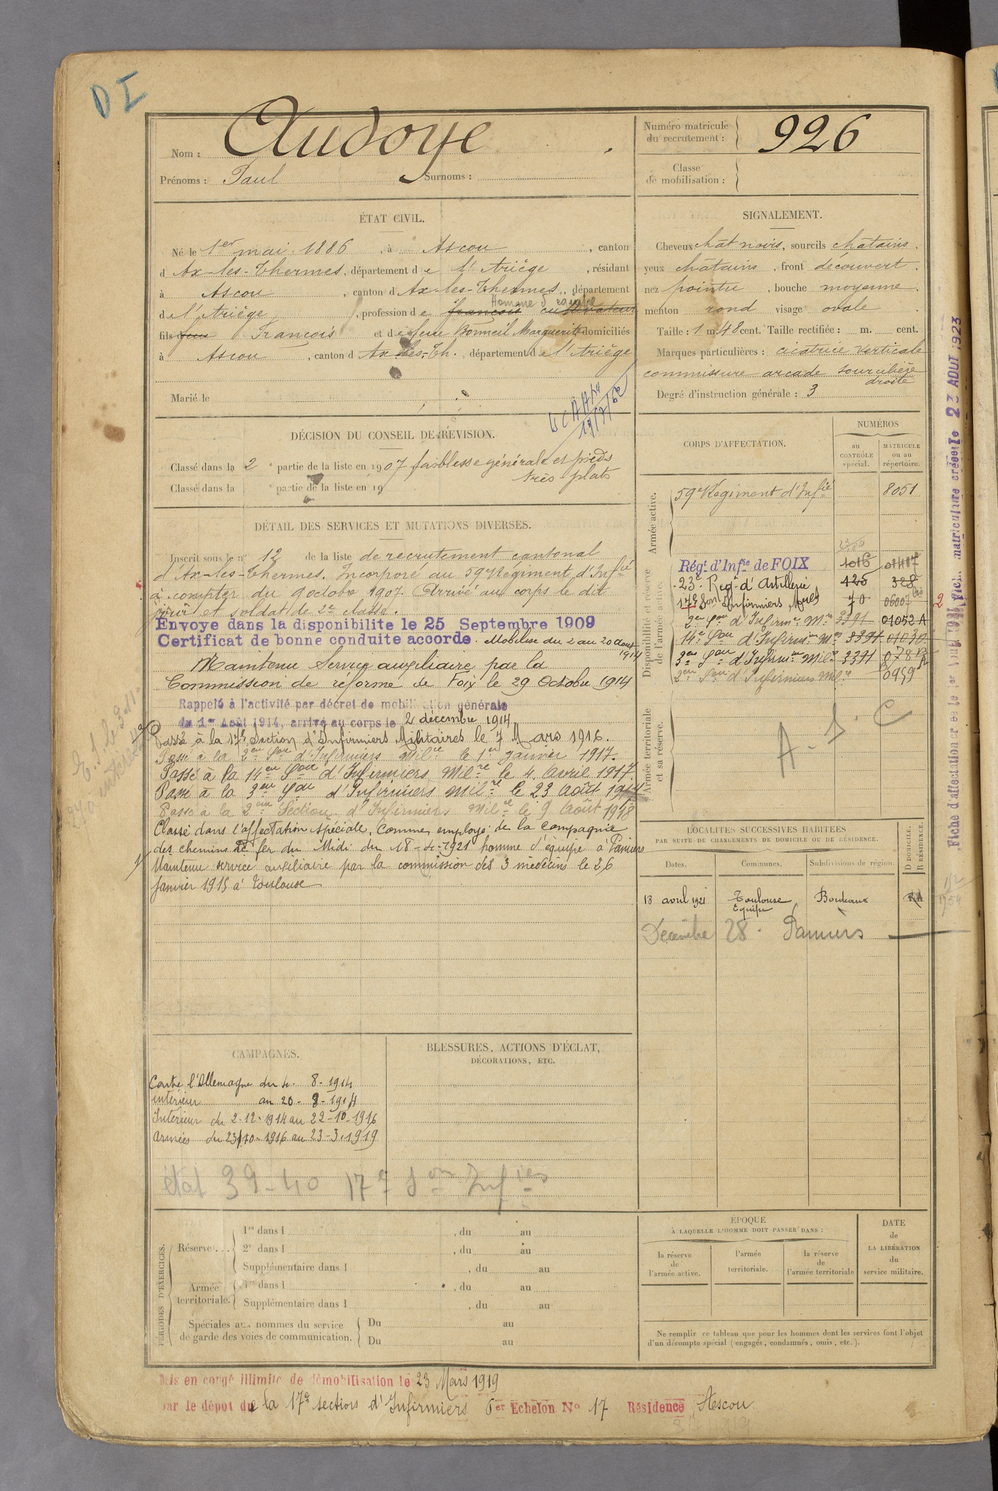 D I
Nom : Audoye
Prénoms : Paul Surnoms :
Numéro matricule du recrutement : 926
Classe de mobilisation :
ÉTAT CIVIL.
Né le 1er mai 1886, à Ascou, canton
d'Ax-les-Thermes, département de l'Ariège, résidant
à Ascou, canton d'Ax-les-Thermes, département
Homme d'équipe
de l'Ariège, profession de cultivateur
fils de François et de feue Bonneil Marguerite domiciliés
à Ascou, canton d'Ax-les-Th., département de l'Ariège
Marié le
19/7/60
DÉCISION DU CONSEIL DE RÉVISION.
Classé dans la 2e partie de la liste en 1907 faiblesse générale et pieds
très plats
Classé dans la partie de la liste en 19
DÉTAIL DES SERVICES ET MUTATIONS DIVERSES.
Inscrit sous le n° 12 de la liste de recrutement cantonal
d'Ax-les-Thermes. Incorporé au 59e Régiment d'Infie
à compter du 9 octobre 1907. Arrivé au corps le dit
jour et soldat de 2e classe.
Envoye dans la disponibilite le 25 Septembre 1909
Certificat de bonne conduite accorde. Mobilisé du 2 au 20 août
1914
Maintenu Service auxiliaire par la
Commission de réforme de Foix le 29 Octobre 1914
Rappelé à l'activité par décret de mobilisation générale
du 1er Août 1914, arrivé au corps le 2 décembre 1914
Passé à la 17e Section d'Infirmiers Militaires le 7 Mars 1916.
Passé à la 2eme Son d'Infirmiers Milre le 1er Janvier 1917.
Passé à la 14eme Son d'Infirmiers Milre le 4 Avril 1917.
Passé à la 3eme Son d'Infirmiers Milre le 23 Août 1917
Passé à la 2eme Section d'Infirmiers Milre le 9 Août 1918
Classé dans l'affectation spéciale, comme employé de la Compagnie
des chemins de fer du Midi du 18-4-1921 homme d'équipe à Pamiers
Maintenu service auxiliaire par la commission des 3 médecins le 26
Janvier 1915 à Toulouse
SIGNALEMENT.
Cheveux chat noirs, sourcils châtains,
yeux châtains, front découvert,
nez pointu, bouche moyenne,
menton rond visage ovale
Taille : 1 m. 48 cent. Taille rectifiée : m. cent.
Marques particulières : cicatrice verticale
commissure arcade sourcilière
droite
Degré d'instruction générale : 3
CORPS D'AFFECTATION.
NUMÉROS
AU CONTRÔLE spécial.
MATRICULE ou au répertoire.
Armée active.
59e Régiment d'Infie 8051
Disponibilité et réserve de l'armée active.
Régt d'Infie de FOIX 1016
23e Regt d'Artillerie
17e Son Infirmiers Mres 70
2e Son d'Infirmrs Mre 3391 01052 A
14e Son d'Infirmrs Mre 3391
3e Son d'Infirmrs Milre 3391
2eme Son d'Infirmiers Milre 0959
Armée territoriale et sa réserve.
LOCALITÉS SUCCESSIVES HABITÉES
PAR SUITE DE CHANGEMENTS DE DOMICILE OU DE RÉSIDENCE.
Dates. Communes. Subdivisions de région. D DOMICILE. R RÉSIDENCE.
18 avril 1921 Toulouse Bordeaux RA
Equipe
Décembre 28. Pamiers
CAMPAGNES.
Contre l'Allemagne du 4-8-1914
intérieur au 20-8-1914
Intérieur du 2-12-1914 au 22-10-1916
Armées du 23-10-1916 au 23-3-1919
état 39-40 17e Son Infiers
BLESSURES, ACTIONS D'ÉCLAT,
DÉCORATIONS, ETC.
PÉRIODES D'EXERCICES.
Réserve... 1re dans l , du au
2e dans l , du au
Supplémentaire dans l , du au
Armée territoriale. 1re dans l , du au
Supplémentaire dans l , du au
Spéciales aux hommes du service de garde des voies de communication. Du au
Du au
ÉPOQUE
À LAQUELLE L'HOMME DOIT PASSER DANS :
la réserve de l'armée active.
l'armée territoriale.
la réserve de l'armée territoriale
DATE de LA LIBÉRATION du service militaire.
Ne remplir ce tableau que pour les hommes dont les services font l'objet
d'un décompte spécial (engagés, condamnés, omis, etc.).
Mis en congé illimité de démobilisation le 23 Mars 1919
par le dépot de la 17e section d'Infirmiers 6er Echelon N° 17 Résidence Ascou